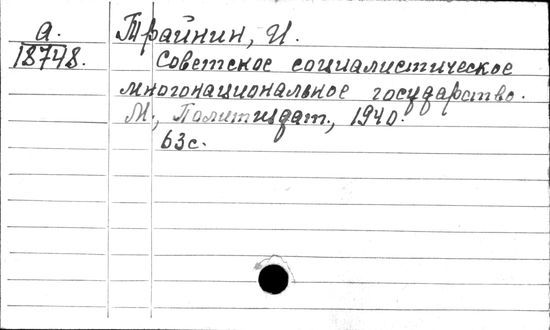 а.
18748.
Трайнин, И.
Советское социалистическое
многонациональное государство.
М., Политиздат., 1940.
63с.